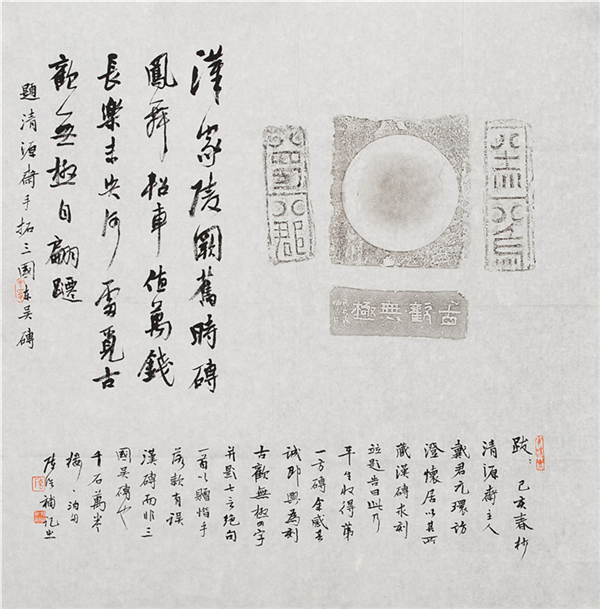 漢家陵闕舊時磚
鳳舞松車值萬錢
長樂未央何處覓古
歡無極自翩躚
題清源齋手拓三國東吳磚
古歡無極
跋：己亥春杪
清源齋主人
戴君元環訪
澄懷居以其所
藏漢磚求刻
並題告曰此乃
平生收得第
一方磚余感其
誠即興爲刻
古歡無極四字
并題七言絶句
一首以
落款有誤
漢磚而非三
國吳磚也
千石萬米
樓
補記